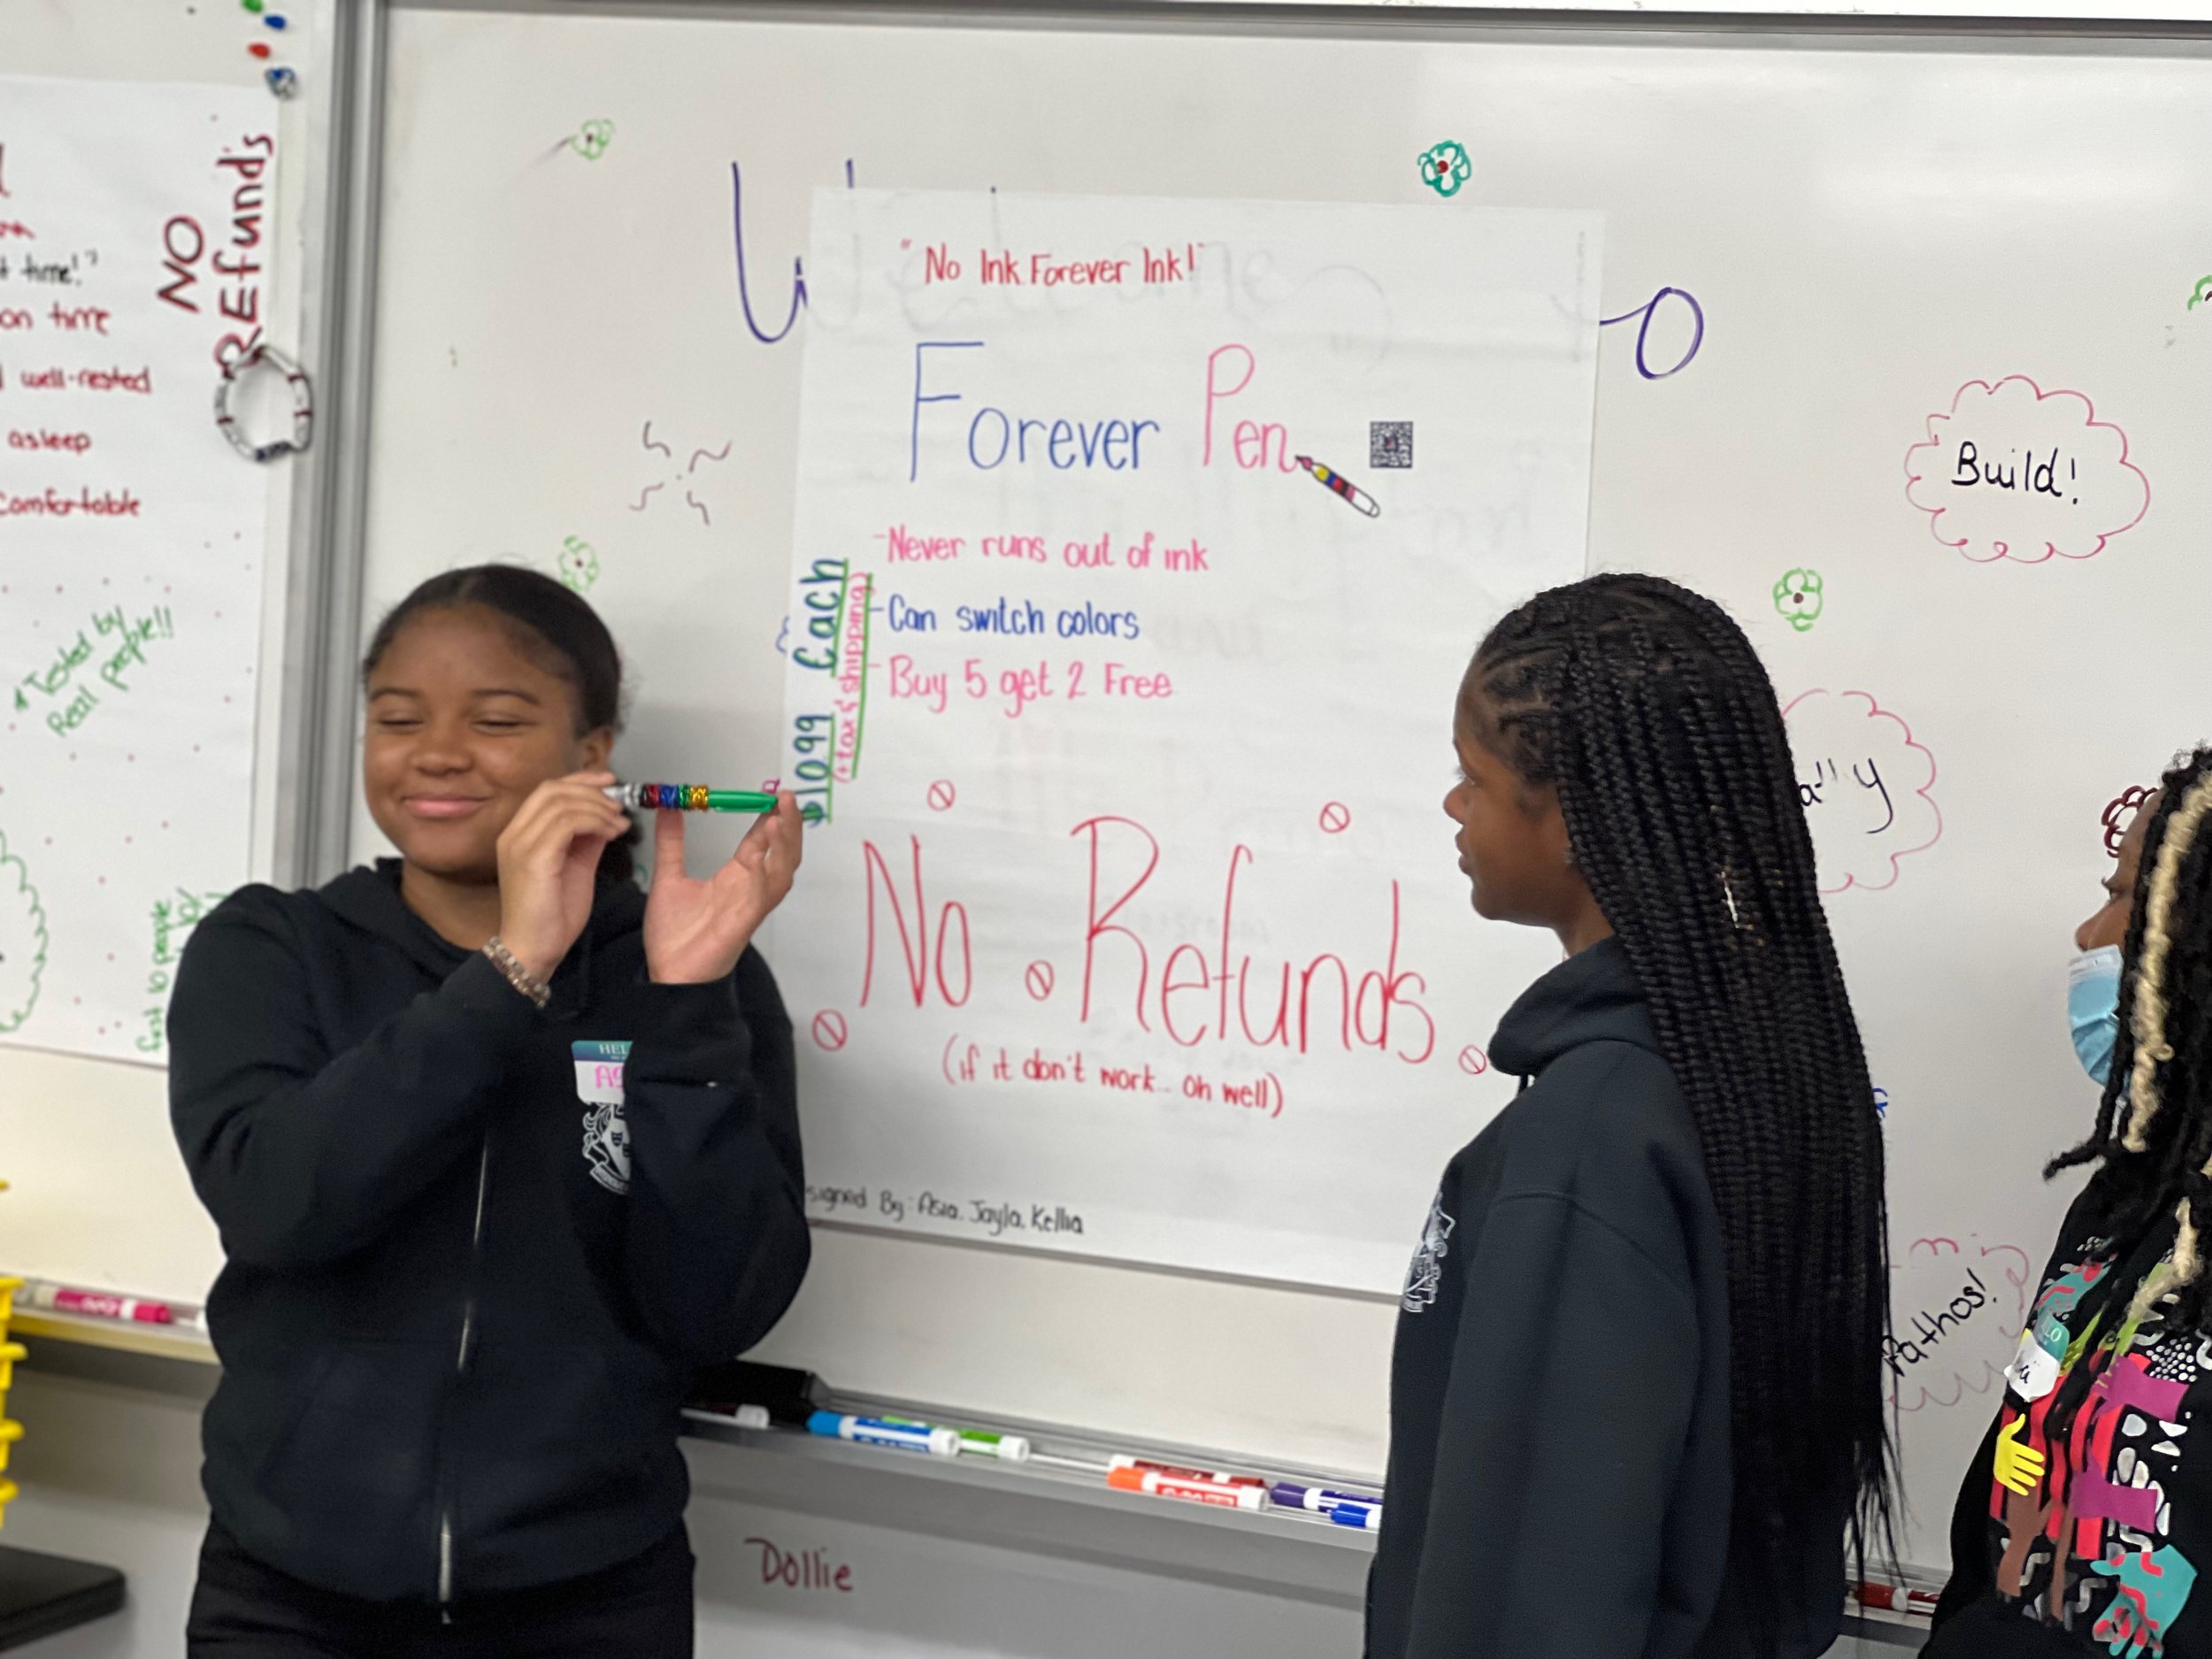 NO
REfunds
t time!"
on time
well-rested
asleep
Comfortable
*Tested by
Real people!!
"No Ink Forever Ink!"
Forever Pen
-Never runs out of ink
-Can switch colors
-Buy 5 get 2 Free
$1099 Each
(+tax & shipping)
No Refunds
(if it don't work... oh well)
signed By: Asia, Jayla, Kellia
o
Build!
Pathos!
HEL
AS
Dollie